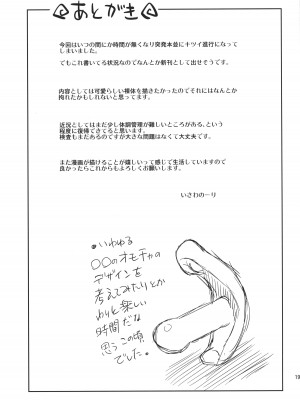 あとがき
今回はいつの間にか時間が無くなり突発本並にキツイ進行になって
しまいました。
でもこれ書いてる状況なのでなんとか新刊として出せそうです。
内容としては可愛らしい裸体を描きたかったのでそれにはなんとか
拘れたかもしれないと思ってます。
近況としてはまだ少し体調管理が難しいところがある、という
程度に復帰できてると思います。
検査もまだあるのですが大きな問題はなくて大丈夫です。
また漫画が描けることが嬉しいって感じで生活していますので
良かったらこれからもよろしくお願いします。
いさわのーり
・いわゆる
〇〇のオモチャの
デザインを
考えてみたりとか
わりと楽しい
時間だな
思うこの頃
でした。
19